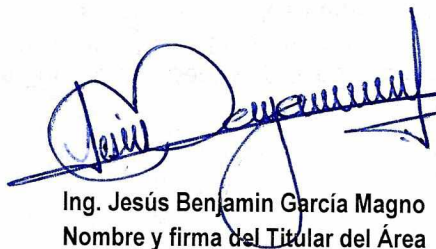 Jesús Benjamin
Ing. Jesús Benjamin García Magno
Nombre y firma del Titular del Área